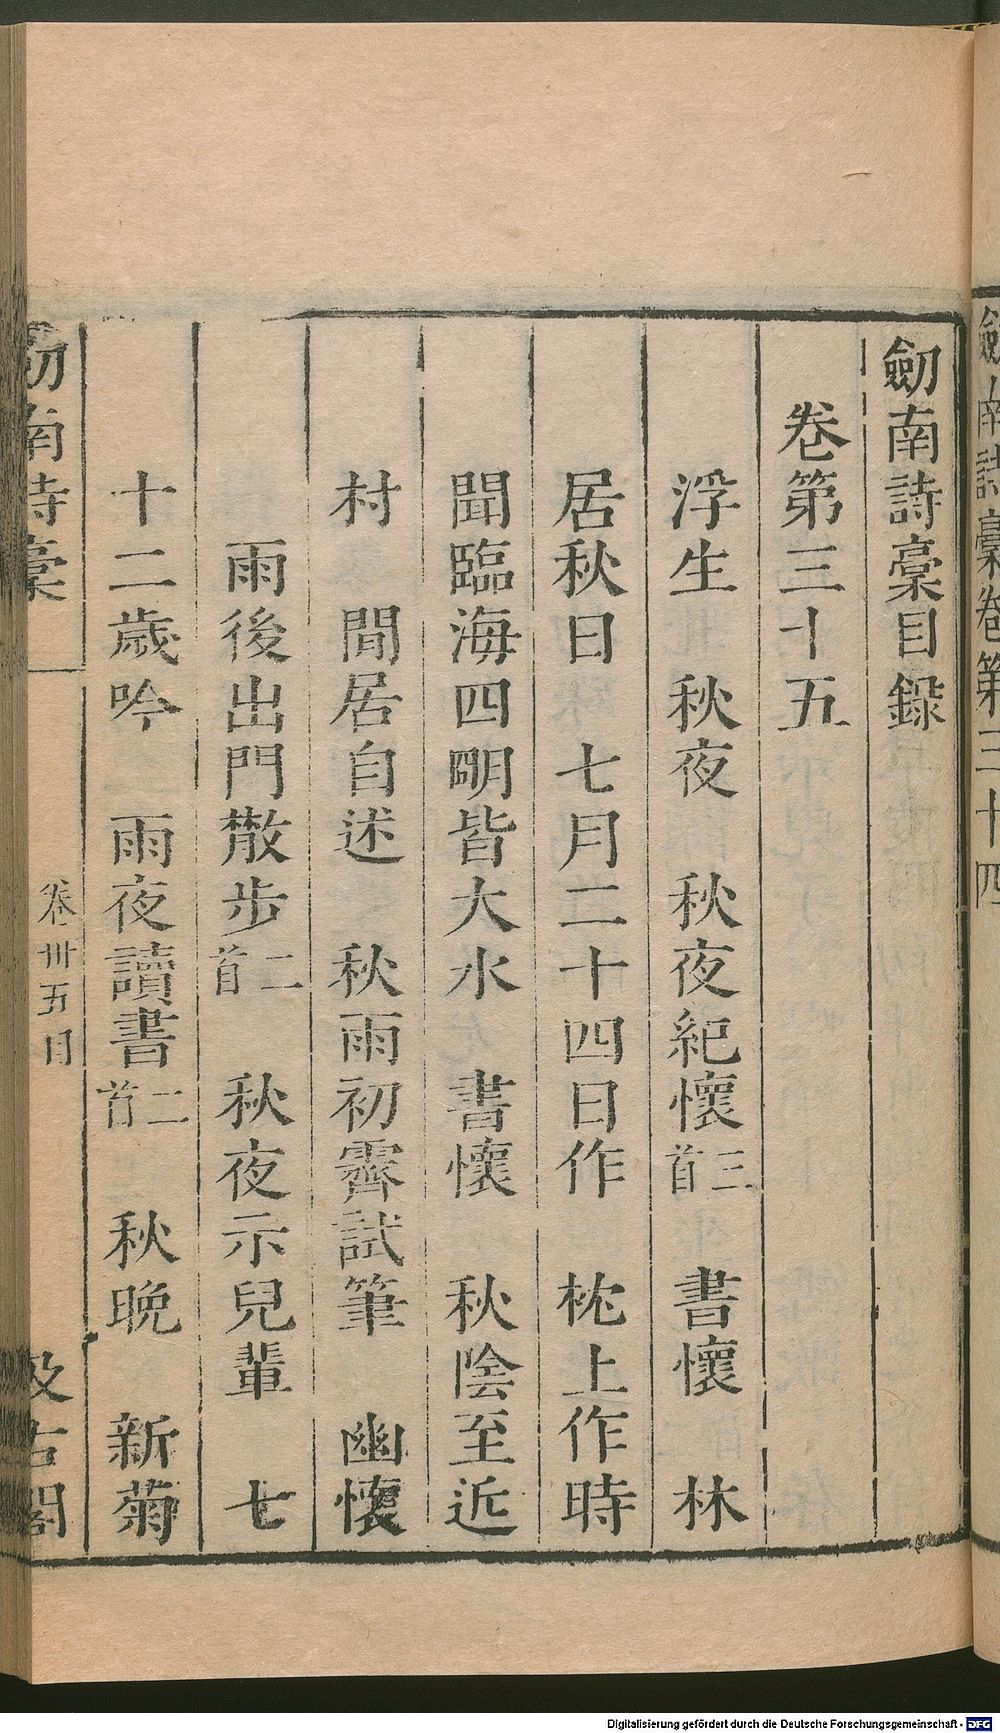 劒南詩藁卷第三十四
劒南詩藁目錄
卷第三十五
浮生 秋夜 秋夜紀懷三首 書懷 林
居秋日 七月二十四日作 枕上作時
聞臨海四明皆大水 書懷 秋陰至近
村 閒居自述 秋雨初霽試筆 幽懷
雨後出門散步二首 秋夜示兒輩 七
十二歲吟 雨夜讀書二首 秋晚 新菊
劒南詩藁 卷卅五目 汲古閣
Digitalisierung gefördert durch die Deutsche Forschungsgemeinschaft - DFG